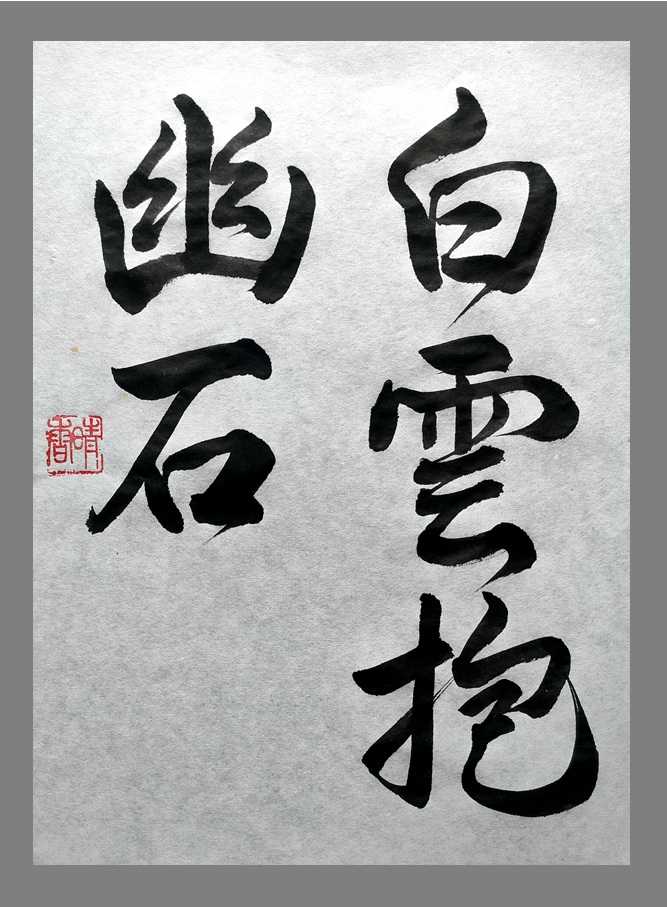 白雲抱
幽石
晴書